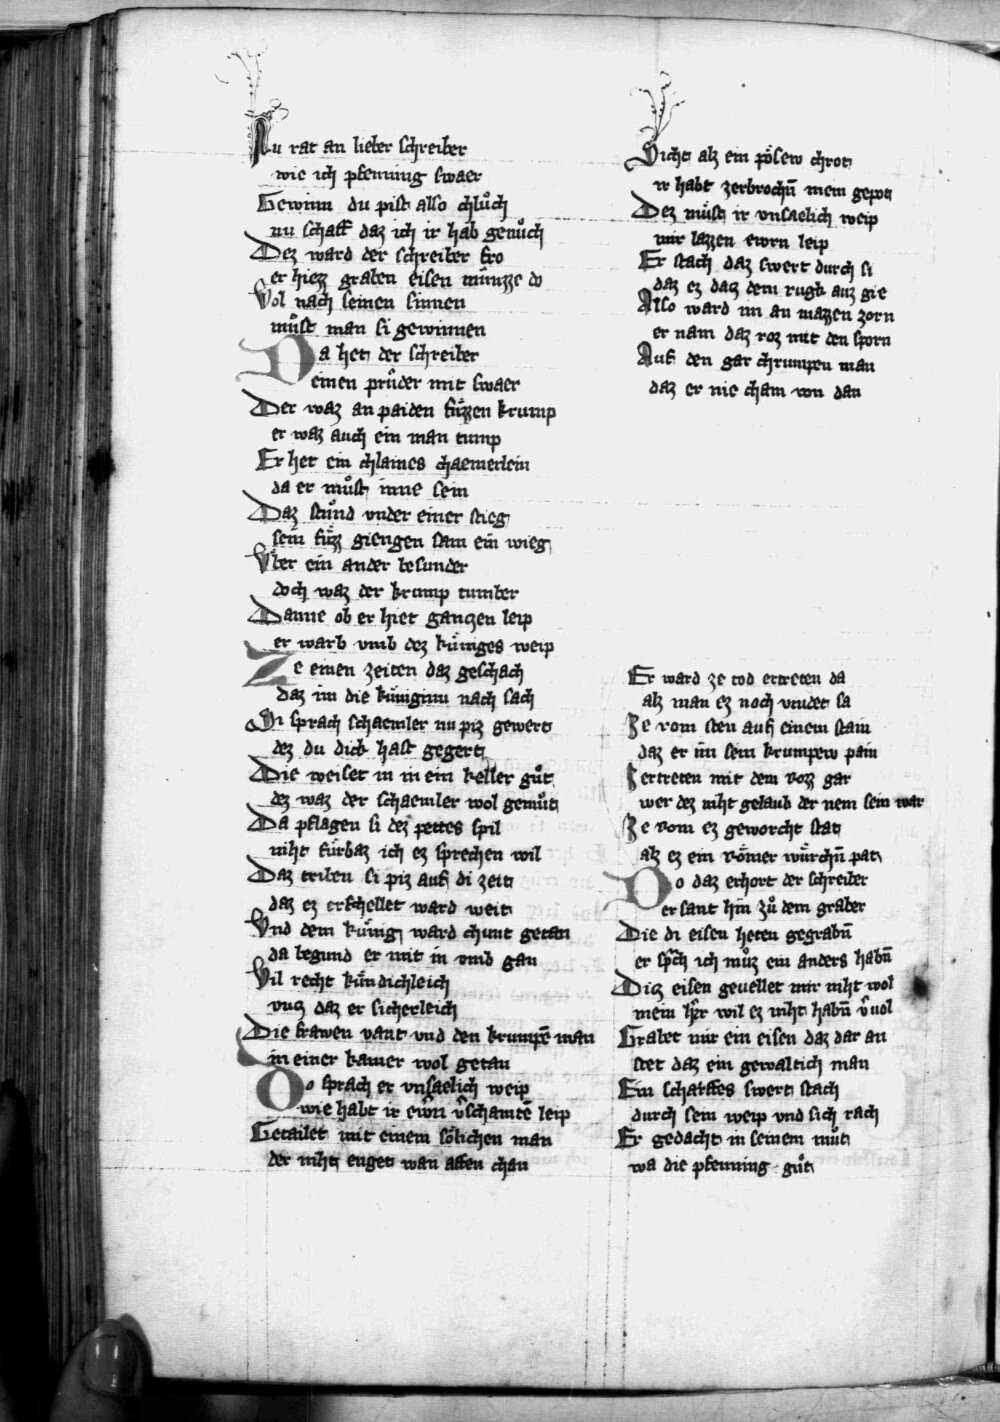 Nu rat an lieber schreiber
wie ich pfenning swaer
Gewinn du pist also chlůch
nu schaff daz ich ir hab genůch
Dez ward der schreiber fro
er hiezz graben eisen můnzze do
Vol nach seinen sinnen
můst man si gewinnen
Da het der schreiber
einen průder mit swaer
Der waz an paiden fůzzen krump
er waz auch ein man tump
Er het ein chlaines chaemerlein
da er můst inne sein
Daz stůnd vnder einer stieg
sein fůzz giengen sam ein wieg
Vber ein ander besunder
doch waz der krump tumber
Danne ob er hiet ganczen leip
er warb vmb dez kůniges weip
Ze einen zeiten daz geschach
daz im die kůniginn nach sach
Si sprach schaemler nu piz gewert
dez du dick hast gegert
Die weiset in in ein keller gůt
dez waz der schaemler wol gemůt
Da pflagen si dez pettes spil
niht fůrbaz ich ez sprechen wil
Daz triben si piz auf di zeit
daz ez erschellet ward weit
Vnd dem kůnig ward chunt getan
da begund er mit in vmb gan
Vil recht kůndichleich
vncz daz er sicherleich
Die frawen vant vnd den krumpē man
in einer kamer wol getan
Do sprach er vnsaelich weip
wie habt ir ewrn v̄schamtē leip
Getailet mit einem sölichen man
der niht enget wan affen chan
Nicht alz ein pösew chrot
ir habt zerbrochn̄ mein gepot
Dez můst ir vnsaelich weip
mir lazzen ewrn leip
Er stach daz swert durch si
daz ez dacz dem rugk auz gie
Also ward im an mazzen zorn
er nam daz roz mit den sporn
Auf den gar chrumpen man
daz er nie cham von dan
Er ward ze tod ertreten da
alz man ez noch vindet sa
Ze rom sten auf einem stain
daz er im sein krumpew pain
Zertreten mit dem rozz gar
wer dez niht gelaub der nem sein war
Ze rom ez geworcht stat
alz ez ein römer würchn̄ pat
Do daz erhort der schreiber
er sant hin zů dem graber
Die di eisen heten gegrabn̄
er sprach ich můz ein anders habn̄
Dicz eisen geuellet mir niht wol
mein herr wil ez niht habn̄ v̄uol
Grabet mir ein eisen daz dar an
stet daz ein gewaltich man
Ein scharffes swert stach
durch sein weip vnd sich rach
Er gedacht in seinem můt
wa die pfenning gůt